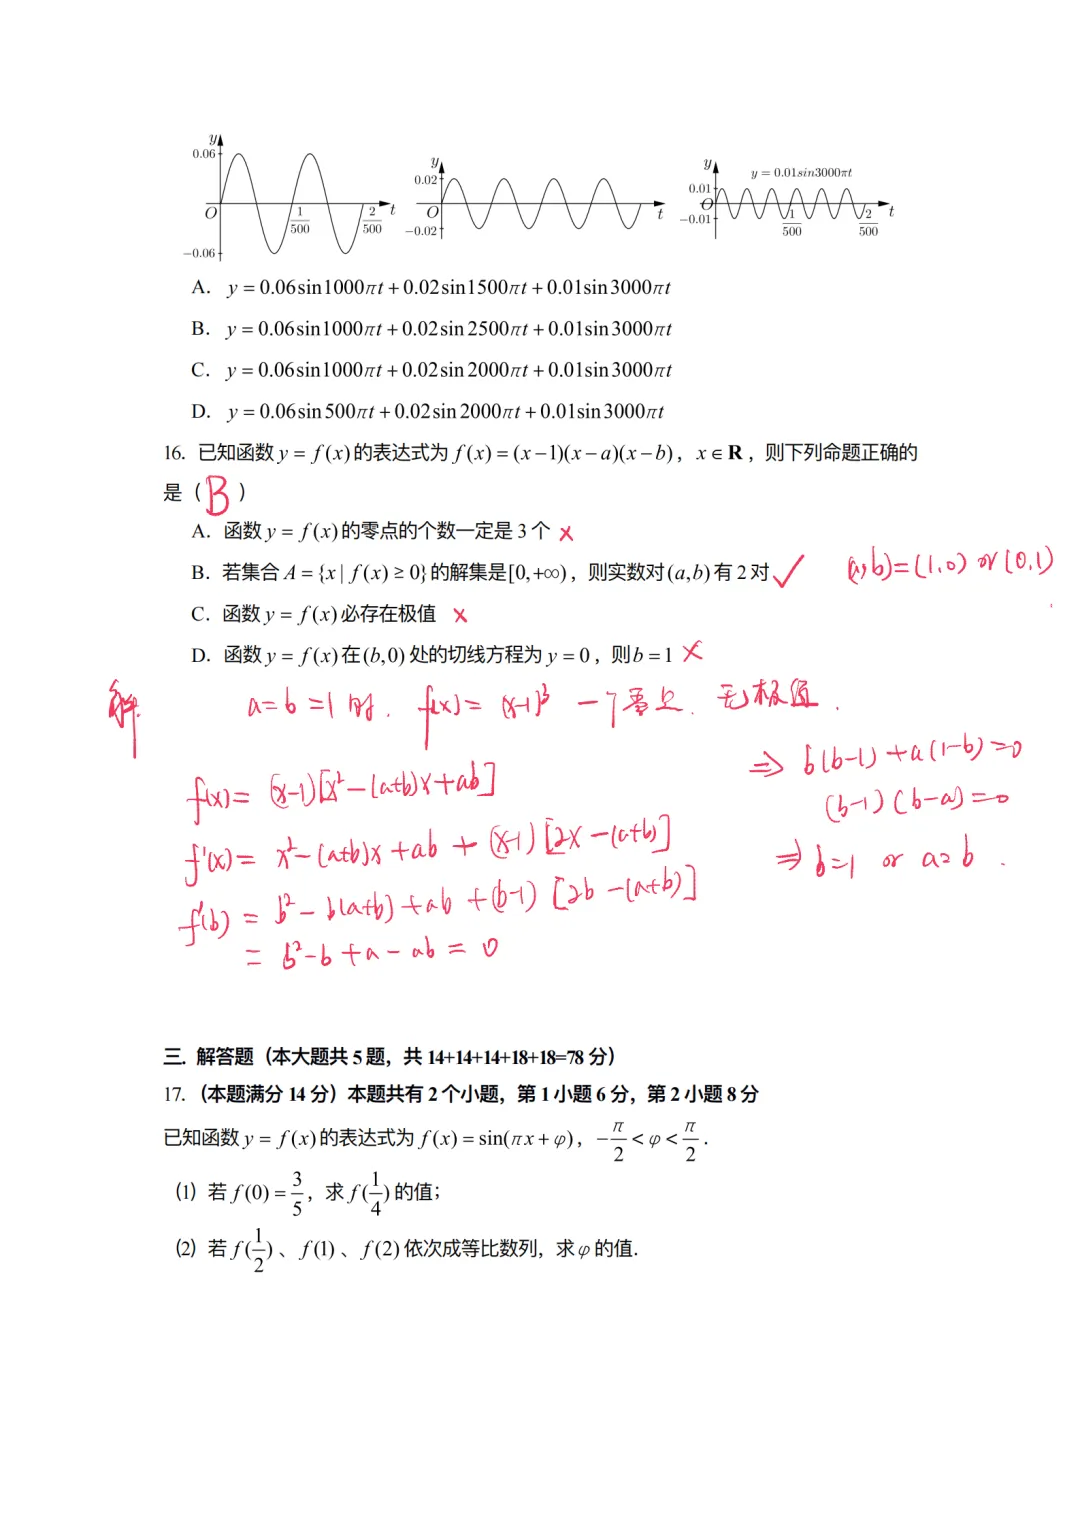 y
0.06
O
1/500
2/500
t
−0.06
y
0.02
O
t
−0.02
y
y = 0.01sin3000πt
0.01
O
−0.01
1/500
2/500
t
A. y = 0.06sin1000πt + 0.02sin1500πt + 0.01sin3000πt
B. y = 0.06sin1000πt + 0.02sin2500πt + 0.01sin3000πt
C. y = 0.06sin1000πt + 0.02sin2000πt + 0.01sin3000πt
D. y = 0.06sin500πt + 0.02sin2000πt + 0.01sin3000πt
16. 已知函数 y = f(x) 的表达式为 f(x) = (x−1)(x−a)(x−b)，x∈R，则下列命题正确的
是（ B ）
A. 函数 y = f(x) 的零点的个数一定是 3 个 ×
B. 若集合 A = {x | f(x) ≥ 0} 的解集是[0,+∞)，则实数对(a,b)有 2 对 ✓ (a,b)=(1,0) or (0,1)
C. 函数 y = f(x) 必存在极值 ×
D. 函数 y = f(x) 在(b,0) 处的切线方程为 y = 0，则b = 1 ×
解. a=b=1时. f(x)= (x-1)³ 一个零点. 无极值.
f(x)= (x-1)[x²-(a+b)x+ab]
f'(x)= x²-(a+b)x+ab + (x-1)[2x-(a+b)]
f'(b) = b²-b(a+b)+ab+(b-1)[2b-(a+b)]
= b²-b+a-ab = 0
⇒ b(b-1)+a(1-b)=0
(b-1)(b-a)=0
⇒ b=1 or a=b.
三. 解答题（本大题共 5 题，共 14+14+14+18+18=78 分）
17.（本题满分 14 分）本题共有 2 个小题，第 1 小题 6 分，第 2 小题 8 分
已知函数 y = f(x) 的表达式为 f(x) = sin(πx+φ)，−π/2 < φ < π/2.
（1）若 f(0) = 3/5，求 f(1/4) 的值；
（2）若 f(1/2)、f(1)、f(2) 依次成等比数列，求φ的值.